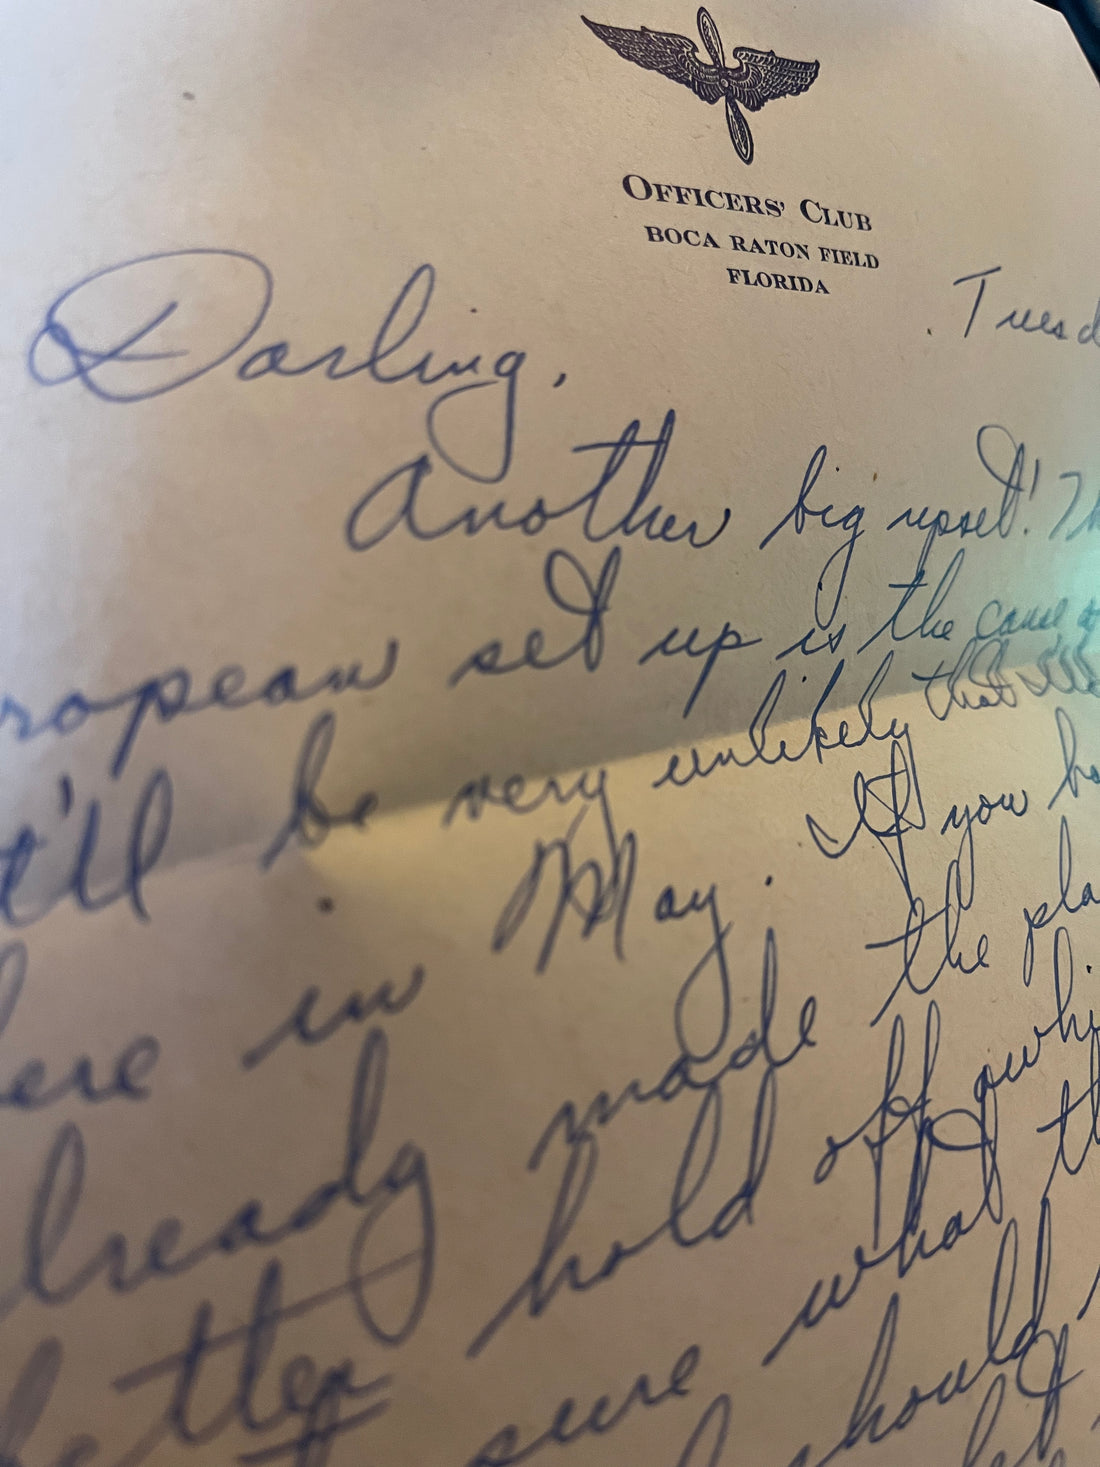 OFFICERS' CLUB
BOCA RATON FIELD
FLORIDA
Tuesd
Darling,
Another big upset! Th
ropean set up is the cause o
t'll be very unlikely that
here in May. If you ha
lready made the pla
better hold off whi
sure what th
should